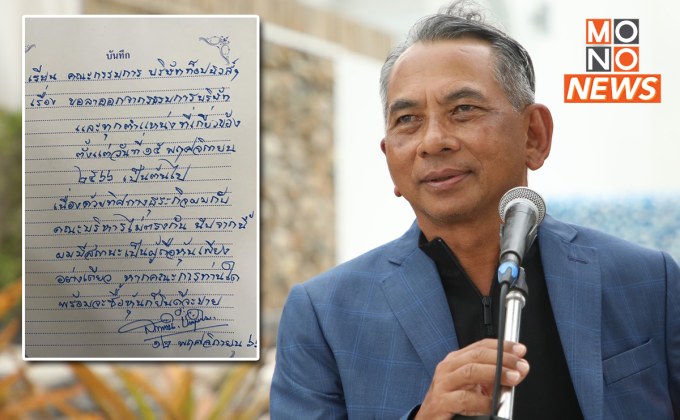 บันทึก
เรียน คณะกรรมการ บริษัทท็อปสวส์ฯ
เรื่อง ขอลาออกจากกรรมการบริษัท
และทุกตำแหน่งที่เกี่ยวข้อง
ตั้งแต่วันที่ ๑๕ พฤศจิกายน
๒๕๖๖ เป็นต้นไป
เนื่องด้วยทิศทางธุรกิจผมกับ
คณะบริหารไม่ตรงกัน นับจากนี้
ผมมีสถานะเป็นผู้ถือหุ้นเพียง
อย่างเดียว หากคณะการท่านใด
พร้อมจะซื้อหุ้นก็ยินดีจะขาย
๑๒ พฤศจิกายน ๖๖
MONO
NEWS